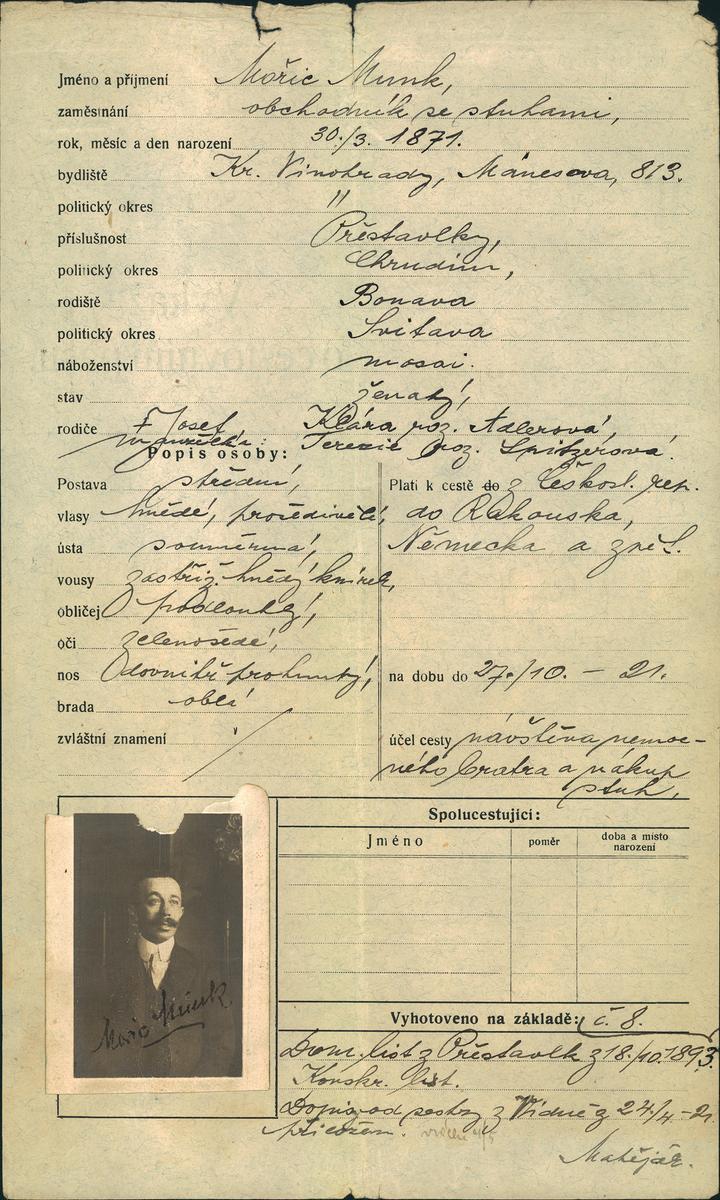 Jméno a příjmení Mořic Munk,
zaměstnání obchodník se stuhami,
rok, měsíc a den narození 30./3. 1871.
bydliště Kr. Vinohrady, Mánesova, 813.
politický okres "
příslušnost Přestavlky,
politický okres Chrudim,
rodiště Bonava
politický okres Svitava
náboženství mosai.
stav ženatý,
rodiče † Josef Klára roz. Adlerová,
manželka: Terezie roz. Spitzerová.
Popis osoby:
Postava střední,
vlasy hnědé, prošedivělé,
ústa souměrná,
vousy zastřiž. hnědý knírek,
obličej podlouhlý,
oči zelenošedé,
nos dovnitř prohnutý,
brada oblá
zvláštní znamení /
Platí k cestě do z Českosl. rep.
do Rakouska,
Německa a zpět.
na dobu do 27./10. – 21.
účel cesty návštěva nemoc-
ného bratra a nákup
stuh.
Spolucestující:
Jméno poměr doba a místo narození
Moric Munk
Vyhotoveno na základě: č. 8.
Dom. list z Přestavlk z 18./10. 1893.
Konskr. list.
Dopis od sestry z Vídně z 24/4 – 21
přiložen.
Matějář.